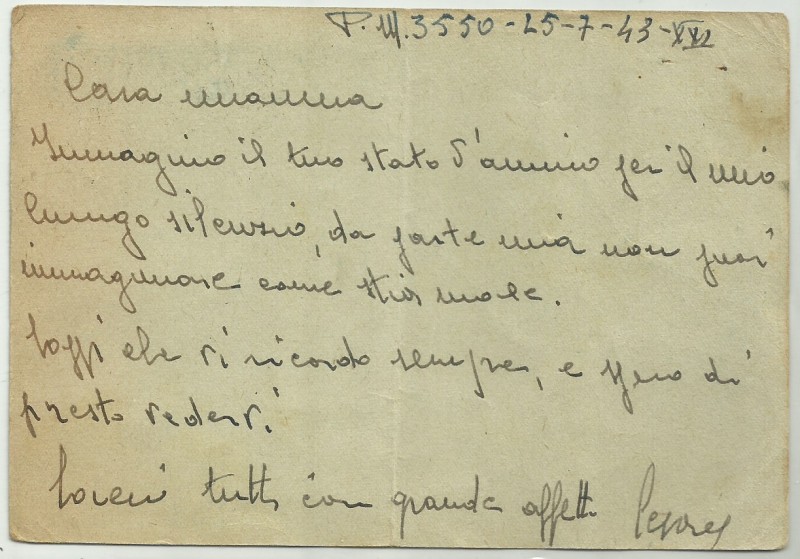 P.M. 3550 - 25-7-43-XXI
Cara mamma
Immagino il tuo stato d'animo per il mio
lungo silenzio, da parte mia non puoi
immaginare come stia male.
Sappi che vi ricordo sempre, e spero di
presto vedervi
tutti con grande affetto